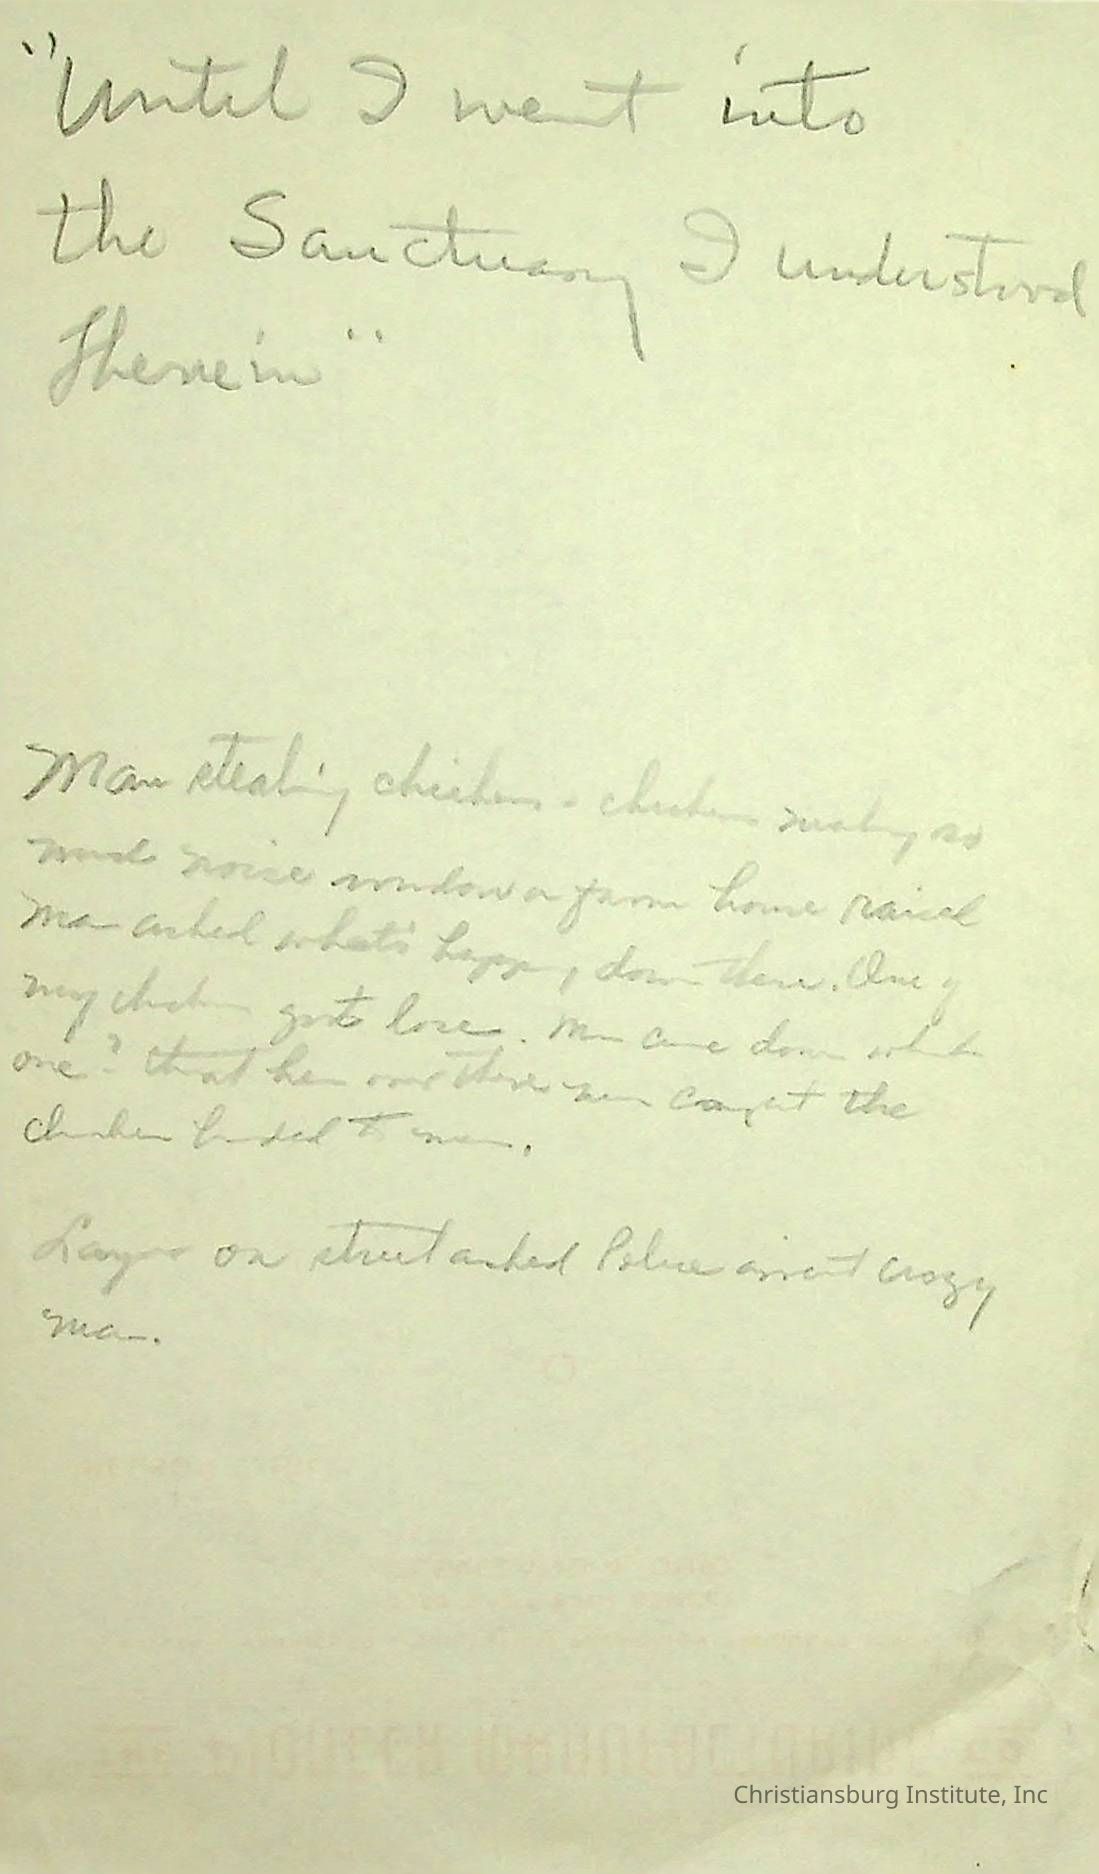 "Until I went into
the Sanctuary I understood
Therein"
Man stealing chickens - chickens making so
much noise window a farm house raised
Man asked what's happ, down there. One of
my chicken got lose. Man came down which
one? that hen over there man caught the
chicken handed to man.
on street asked Police arrest crazy
man.
Christiansburg Institute, Inc